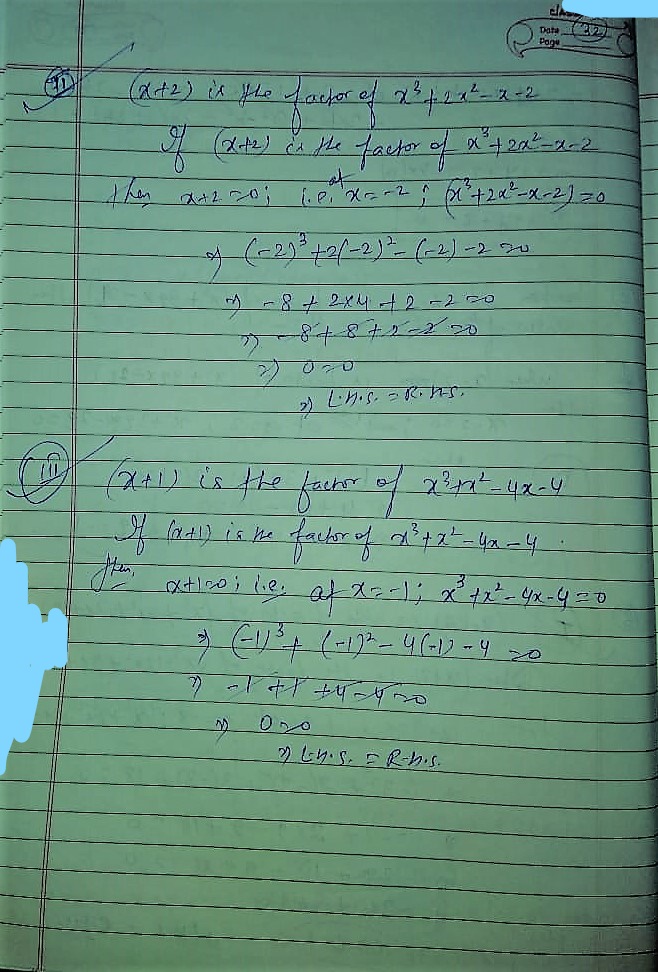 Date 32
Page
(ii) (x+2) is the factor of x³+2x²-x-2
If (x+2) is the factor of x³+2x²-x-2
then x+2=0; i.e. at x=-2; (x³+2x²-x-2)=0
⇒ (-2)³+2(-2)²-(-2)-2=0
⇒ -8+2×4+2-2=0
⇒ -8+8+2-2=0
⇒ 0=0
⇒ L.h.s. = R.h.s.
(iii) (x+1) is the factor of x³+x²-4x-4
If (x+1) is the factor of x³+x²-4x-4.
then, x+1=0; i.e. at x=-1; x³+x²-4x-4=0
⇒ (-1)³+(-1)²-4(-1)-4=0
⇒ -1+1+4-4=0
⇒ 0=0
⇒ L.h.s. = R.h.s.